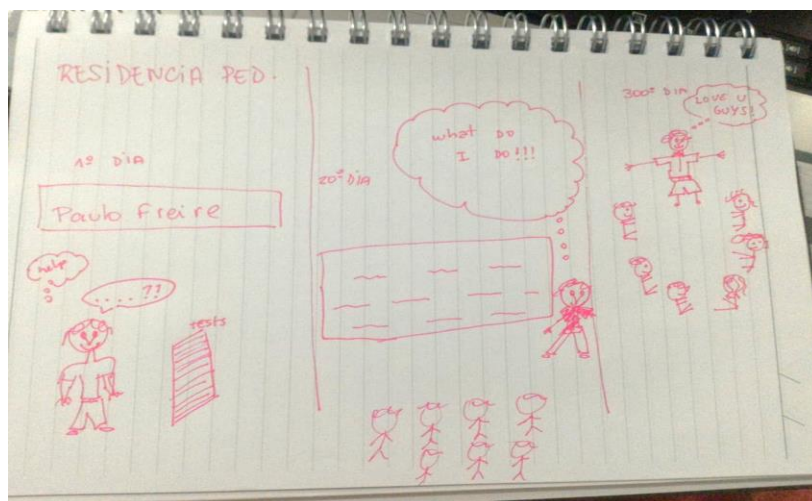 RESIDENCIA PED.
1º DIA
Paulo Freire
help
....??
tests
20º DIA
what DO
I DO!!!
300º DIA
LOVE U
GUYS!